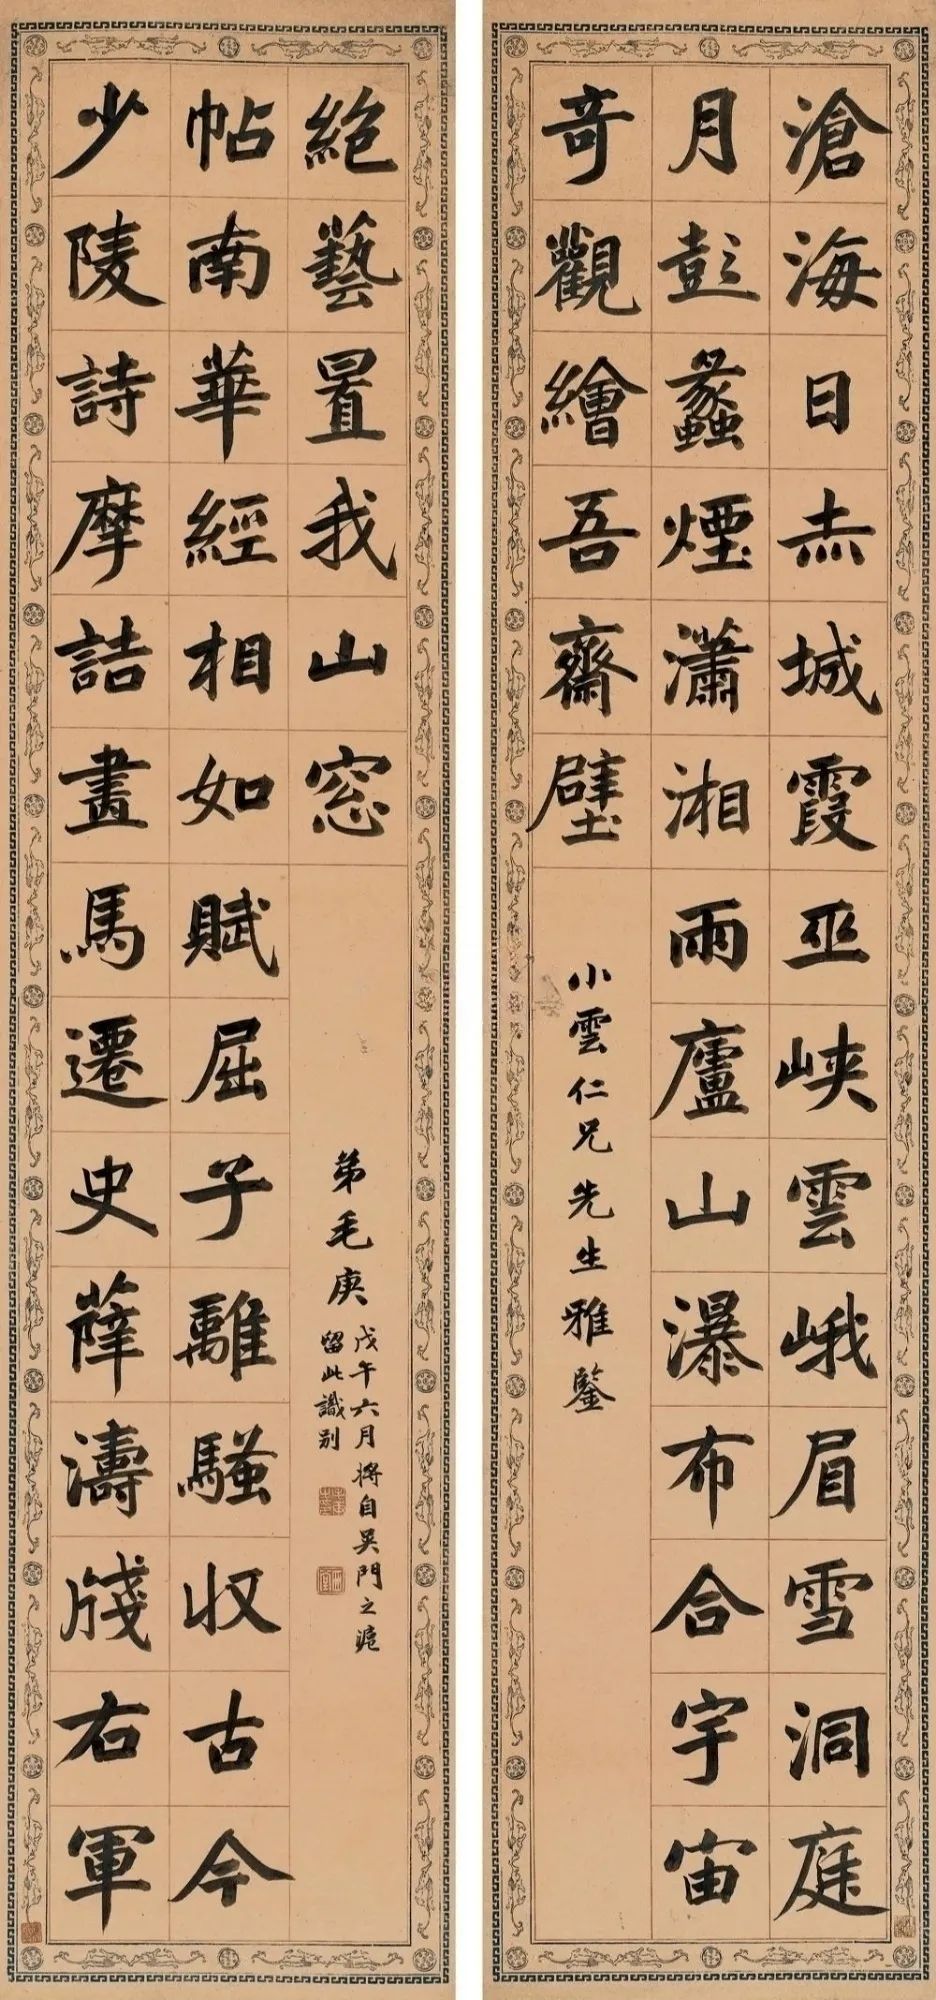 滄海日赤城霞巫峽雲峨眉雪洞庭
月彭蠡煙瀟湘雨廬山瀑布合宇宙
奇觀繪吾齋壁
小雲仁兄先生雅鑒
少陵詩摩詰畫馬遷史薛濤牋右軍
帖南華經相如賦屈子離騷収古今
絶藝置我山窓
弟毛庚
戊午六月將自吳門之滬
留此識别